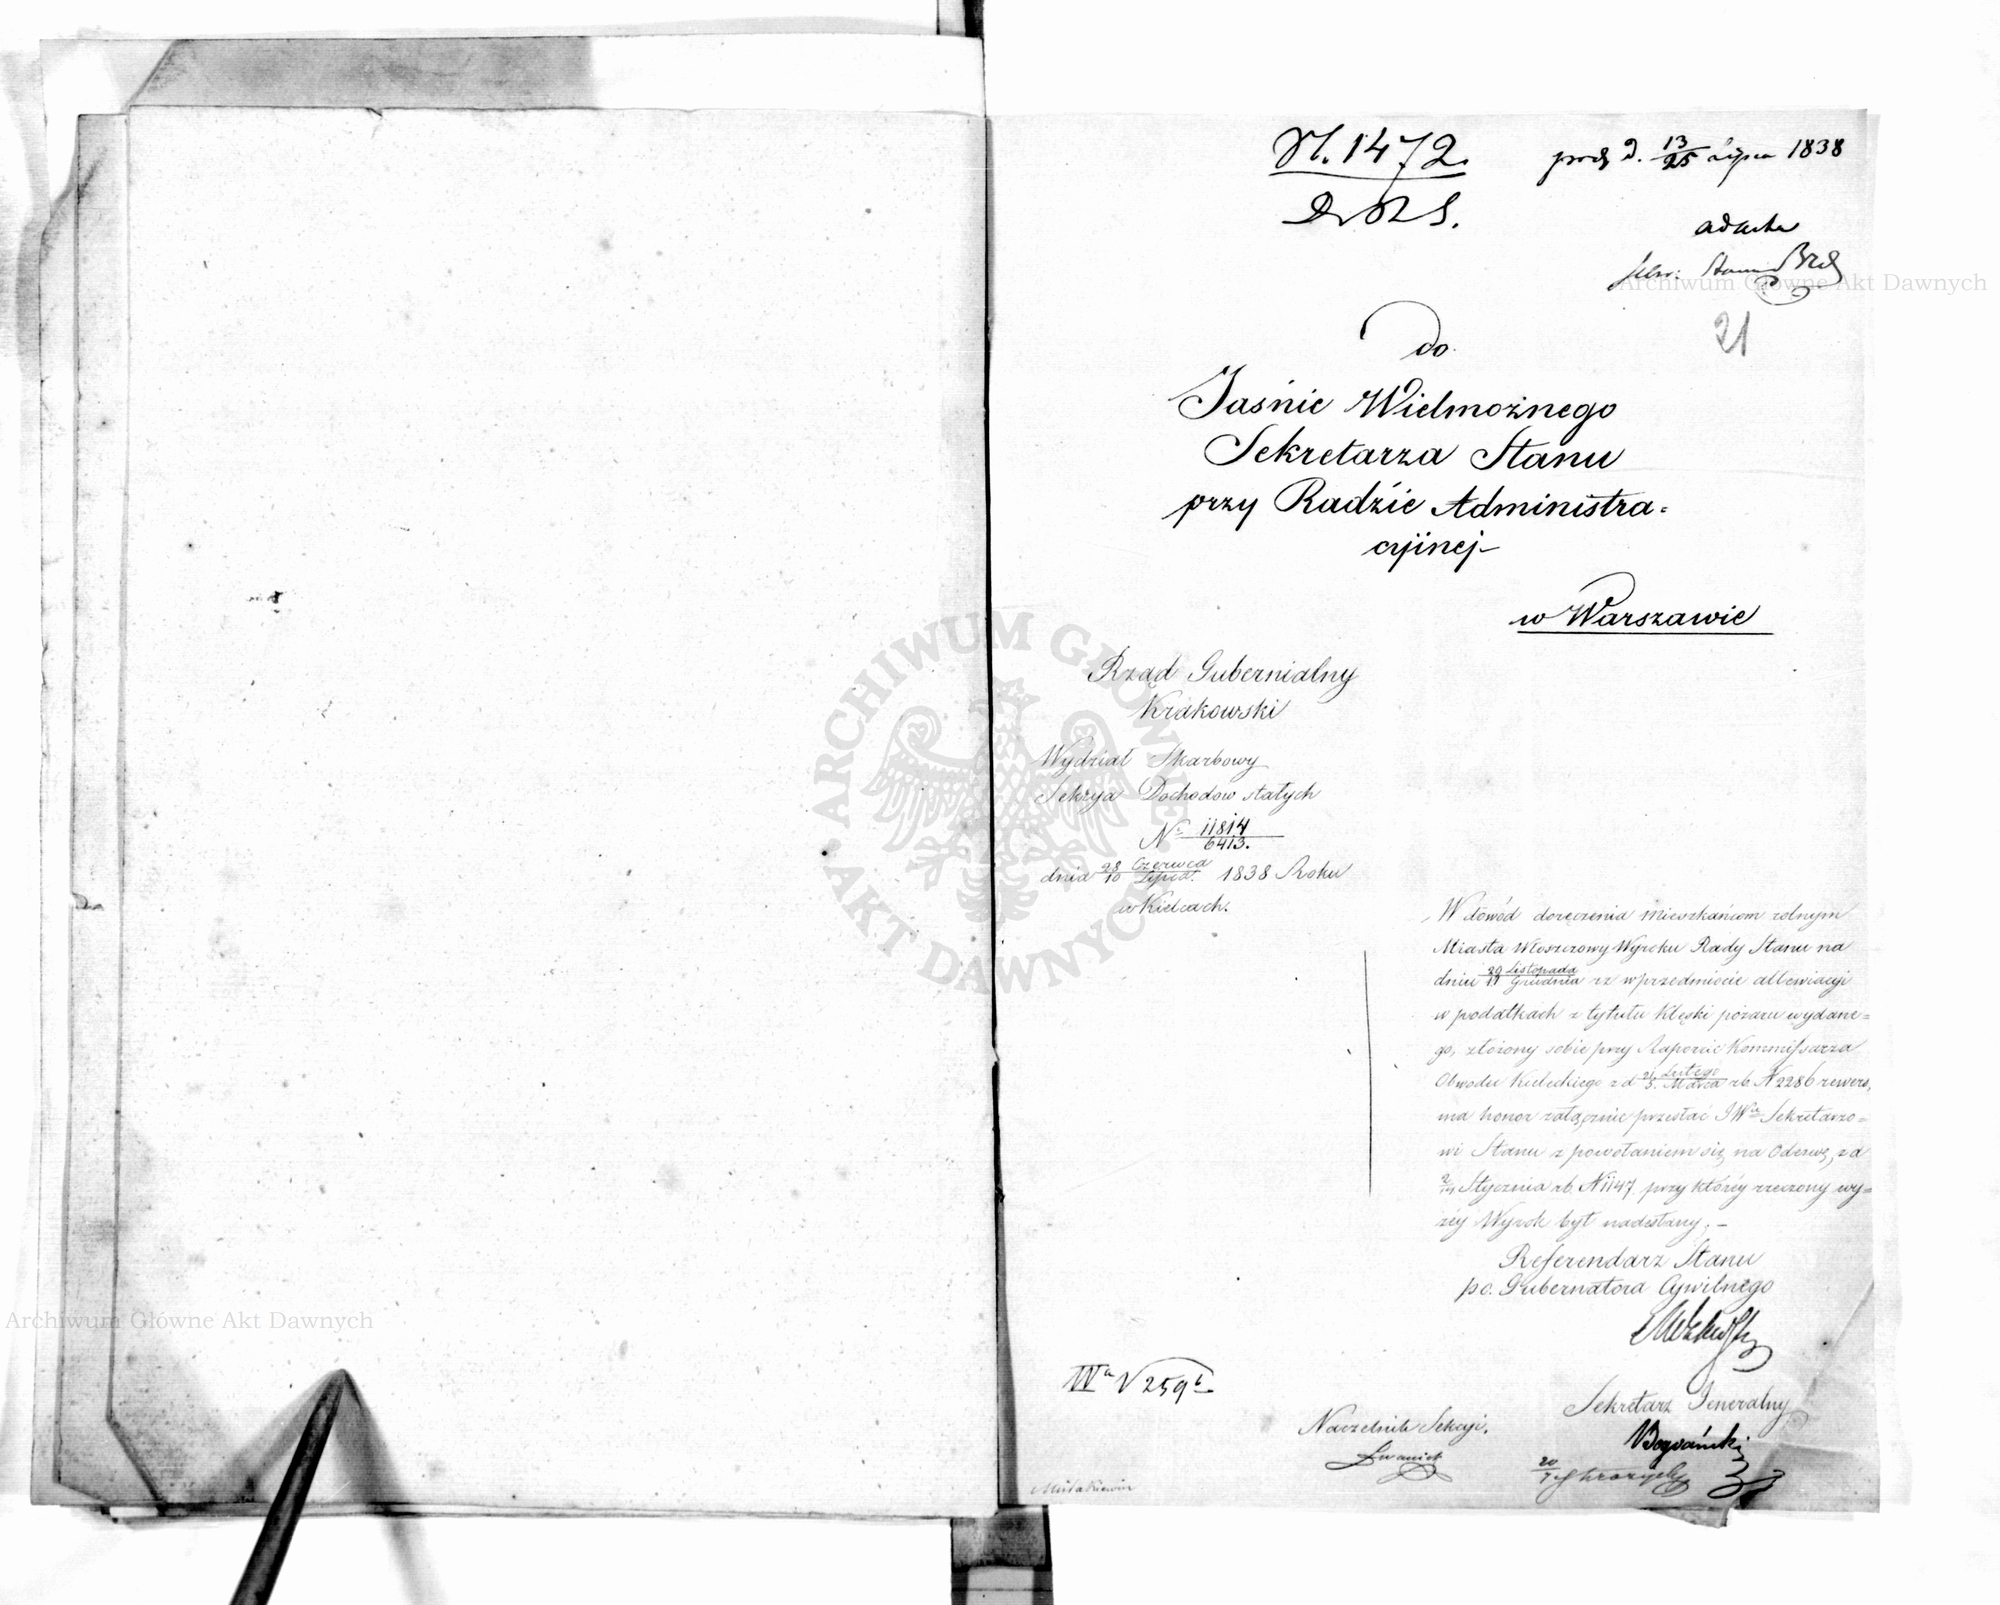 N. 1472.
prod d. 13/25 Lipca 1838
ad acta
21
Do
Jaśnie Wielmożnego
Sekretarza Stanu
przy Radzie Administra=
cyjnej
w Warszawie
Rząd Gubernialny
Krakowski
Wydział Skarbowy
Sekcya Dochodow stałych
No 11814/6413.
dnia 28 Czerwca/10 Lipca 1838 Roku
w Kielcach.
W dowód doręczenia mieszkańcom rolnym
Miasta Włoszczowy Wyroku Rady Stanu na
dniu 29 Listopada/11 Grudnia rz w przedmiocie allewiacyi
w podatkach z tytułu klęski pożaru wydane=
go, złożony sobie przy Raporcie Kommissarza
Obwodu Kieleckiego z d 21 Lutego/5. Marca rb. N 2286 rewers,
ma honor załącznie przesłać JWu Sekretarzo=
wi Stanu z powołaniem się na Odezwę z d
2/14 Stycznia rb. N 1147. przy któréy rzeczony wy=
żéy Wyrok był nadesłany. –
Referendarz Stanu
po. Gubernatora Cywilnego
Sekretarz Jeneralny
Naczelnik Sekcyi.
ARCHIWUM GŁÓWNE AKT DAWNYCH
Archiwum Główne Akt Dawnych
Archiwum Główne Akt Dawnych